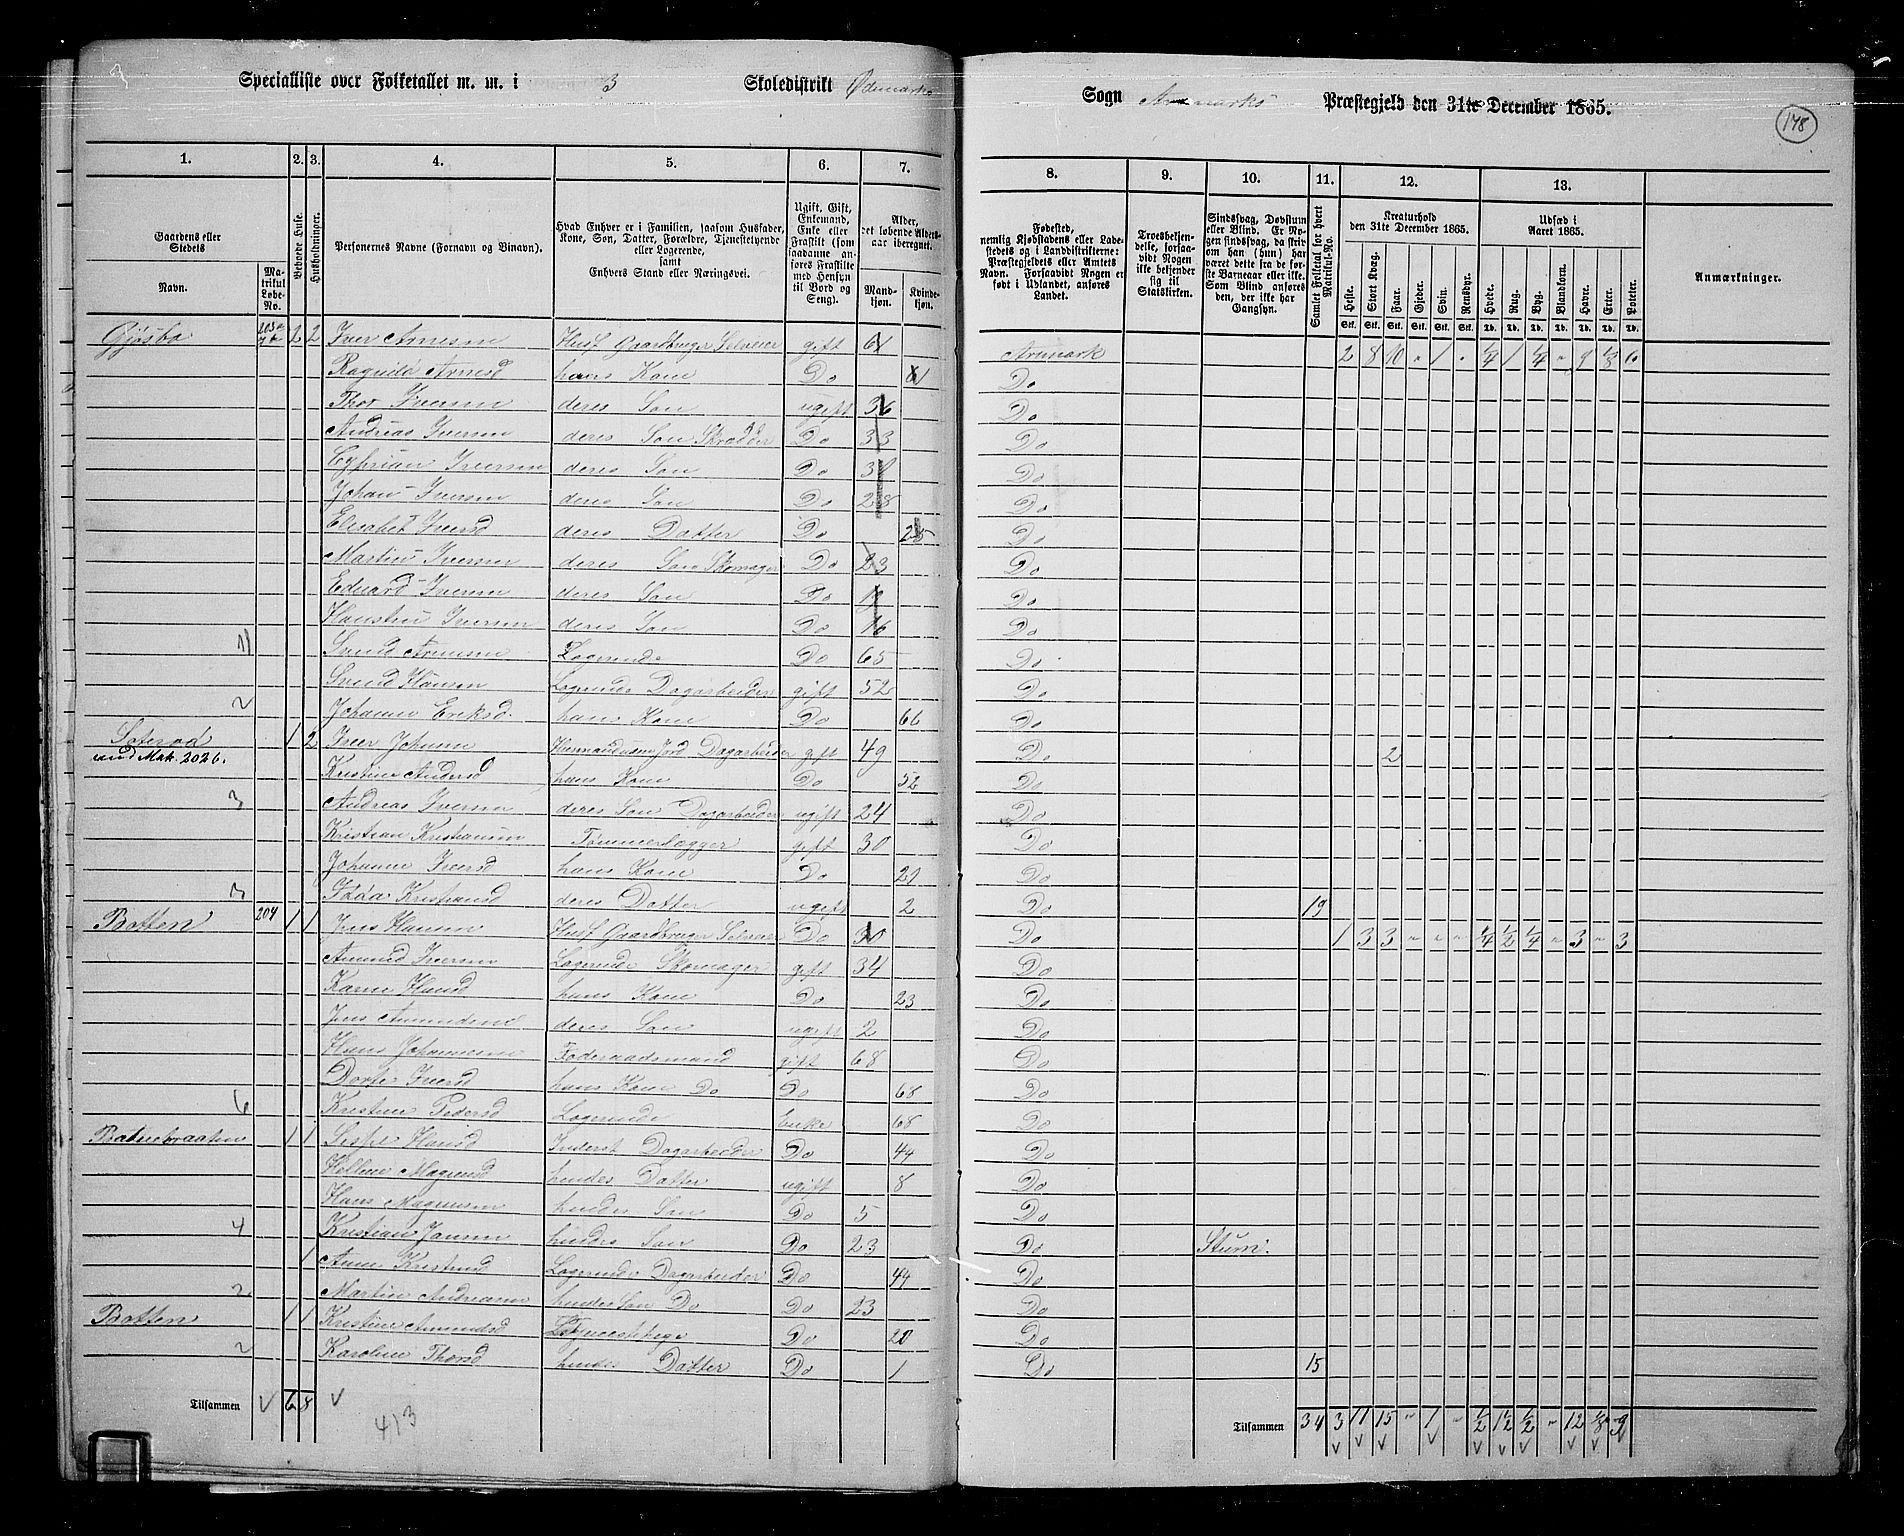 Specialliste over Folketallet m. m. i 3 Skoledistrikt Ødemarks Sogn Aremarks Præstegjeld den 31te December 1865.
178
1. 2. 3. 4. 5. 6. 7. 8. 9. 10. 11. 12. 13.
Gaardens eller Stedets Navn.
Matrikul Løbe-No.
Beboede Huse.
Husholdninger.
Personernes Navne (Fornavn og Binavn).
Hvad Enhver er i Familien, saasom Husfader, Kone, Søn, Datter, Forældre, Tjenestetyende eller Logerende, samt Enhvers Stand eller Næringsvei.
Ugift, Gift, Enkemand, Enke eller Fraskilt (som saadanne anføres Fraskilte med Hensyn til Bord og Seng).
Alder, det løbende Aldersaar iberegnet.
Mandkjøn. Kvindekjøn.
Fødested, nemlig Kjøbstadens eller Ladestedets og i Landdistrikterne: Præstegjeldets eller Amtets Navn. Forsaavidt Nogen er født i Udlandet, anføres Landet.
Troesbekjendelse, forsaavidt Nogen ikke bekjender sig til Statskirken.
Sindssvag, Døvstum eller Blind. Er Nogen sindssvag, da skriv om han (hun) har været dette fra de første Barneaar eller ikke. Som Blind anføres den, der ikke har Gangsyn.
Samlet Folketal for hvert Matrikul-No.
Kreaturhold den 31te December 1865.
Heste. Stort Kvæg. Faar. Gjeder. Svin. Rensdyr.
Udsæd i Aaret 1865.
Hvede. Rug. Byg. Blandkorn. Havre. Erter. Poteter.
Anmærkninger.
Gjøsbø 2 2 Iver Arnesen Husf Gaardbruger Selveier gift 61 Aremark 2 8 10 " 1 " 1/4 1 1/4 " 9 1/8 6
Ragnild Arnesd hans Kone Do 61 Do
Thor Iversen deres Søn ugift 36 Do
Andreas Iversen deres Søn Skrædder Do 33 Do
Cyprian Iversen deres Søn Do 31 Do
Johan Iversen deres Søn Do 28 Do
Elisabet Iversd deres Datter Do 25 Do
Martin Iversen deres Søn Skomager Do 23 Do
Eduard Iversen deres Søn Do 19 Do
Hanstin Iversen deres Søn Do 16 Do
11 Svend Arnesen Logerende Do 65 Do
Svend Hansen Logerende Dagarbeider gift 52 Do
2 Johanne Eriksd. hans Kone Do 66 Do
Seterød 1 2 Iver Johnsen Huusmand uden Jord Dagarbeider gift 49 Do 2
und Mat. 202b.
Kristine Andersd hans Kone Do 52 Do
3 Andreas Iversen deres Søn Dagarbeider ugift 24 Do
Kristian Kristiansen Tømmerlægger gift 30 Do
Johanne Iversd hans Kone Do 21 Do
3 Kristiansd deres Datter ugift 2 Do 19
Botten 204 1 1 Jens Hansen Husf Gaardbruger Selveier Do 30 Do 1 3 3 " " " 1/4 1/2 1/4 " 3 " 3
Amund Iversen Logerende Skomager gift 34 Do
Karen Hansd hans Kone Do 23 Do
Jens Amundsen deres Søn ugift 2 Do
Hans Johannesen Føderaadsmand gift 68 Do
Dorte Iversd hans Kone Do Do 68 Do
6 Kristine Pedersd Logerende Enke 68 Do
Botnebraaten 1 1 Hansd Inderst Dagarbeider Do 44 Do
Hellene Magnusd hendes Datter ugift 8 Do
Hans Magnusen hendes Søn Do 5 Do
4 Kristian Jansen hendes Søn Do 23 Do Stum.
1 Anne Kristensd Logerende Dagarbeider Do 44 Do
2 Martin Andreasen hendes Søn Do Do 23 Do
Botten 1 1 Kristine Amundsd Do 20 Do
2 Karoline Thorsd hendes Datter Do 1 Do 15
Tilsammen 6 8
413
Tilsammen 34 3 11 15 " 1 " 1/2 1 1/2 1/2 " 12 1/8 9